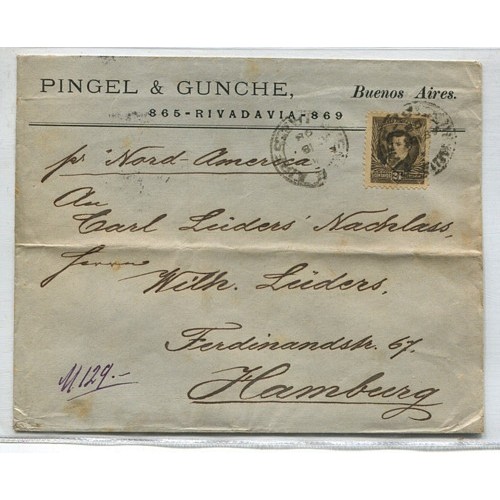 PINGEL & GUNCHE, Buenos Aires.
865-RIVADAVIA-869
pr "Nord-America"
An
Carl Lüders' Nachlass,
Herrn
Wilh. Lüders,
Ferdinandstr. 67,
Hamburg
M. 129.-
24